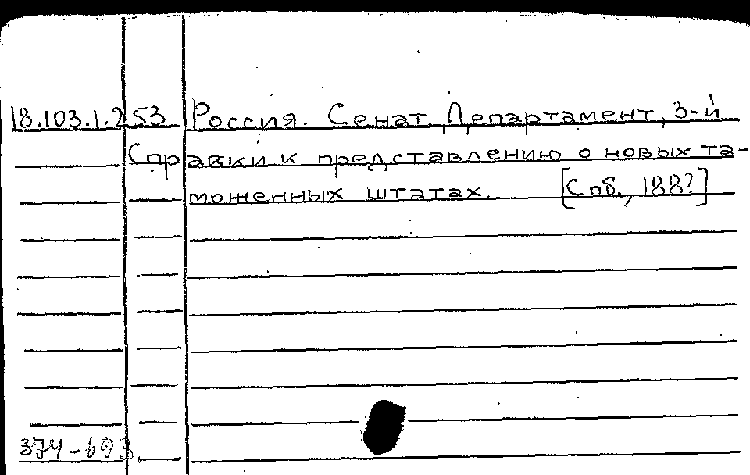 18.103.1.253 Россия. Сенат. Департамент, 3-й
Справки к представлению о новых та-
моженных штатах. [Спб., 188?]
374-693